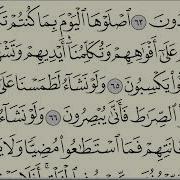 دُونَ ٦٣ ٱصْلَوْهَا ٱلْيَوْمَ بِمَا كُنتُمْ تَكْ
عَلَىٰٓ أَفْوَٰهِهِمْ وَتُكَلِّمُنَآ أَيْدِيهِمْ وَتَشْهَ
يَكْسِبُونَ ٦٥ وَلَوْ نَشَآءُ لَطَمَسْنَا عَلَىٰٓ
ٱلصِّرَٰطَ فَأَنَّىٰ يُبْصِرُونَ ٦٦ وَلَوْ نَشَآءُ
انَتِهِمْ فَمَا ٱسْتَطَٰعُوا۟ مُضِيًّا وَلَا يَرْ